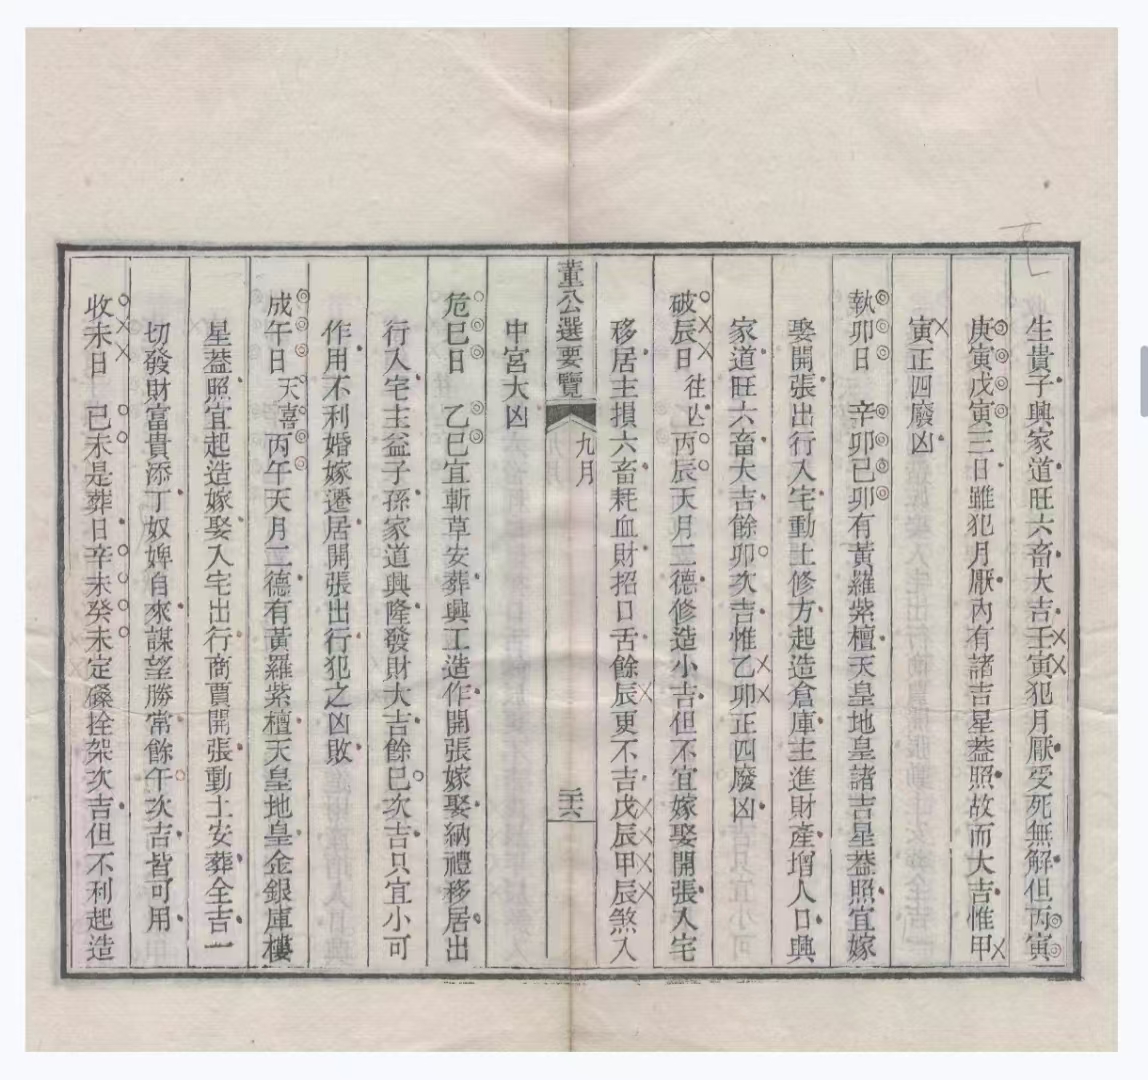 生貴子興家道旺六畜大吉壬寅犯月厭受死無解但丙寅
庚寅戊寅三日雖犯月厭內有諸吉星葢照故而大吉惟甲
寅正四廢凶
執卯日 辛卯己卯有黃羅紫檀天皇地皇諸吉星葢照宜嫁
娶開張出行入宅動土修方起造倉庫主進財產增人口興
家道旺六畜大吉餘卯次吉惟乙卯正四廢凶
破辰日 往亡丙辰天月二德修造小吉但不宜嫁娶開張入宅
移居主損六畜耗血財招口舌餘辰更不吉戊辰甲辰煞入
董公選要覽
九月
二十六
中宮大凶
危巳日 乙巳宜斬草安葬興工造作開張嫁娶納禮移居出
行入宅主益子孫家道興隆發財大吉餘巳次吉只宜小可
作用不利婚嫁遷居開張出行犯之凶敗
成午日 天喜丙午天月二德有黃羅紫檀天皇地皇金銀庫樓
星葢照宜起造嫁娶入宅出行商賈開張動土安葬全吉一
切發財富貴添丁奴婢自來謀望勝常餘午次吉皆可用
收未日 己未是葬日辛未癸未定磉拴架次吉但不利起造